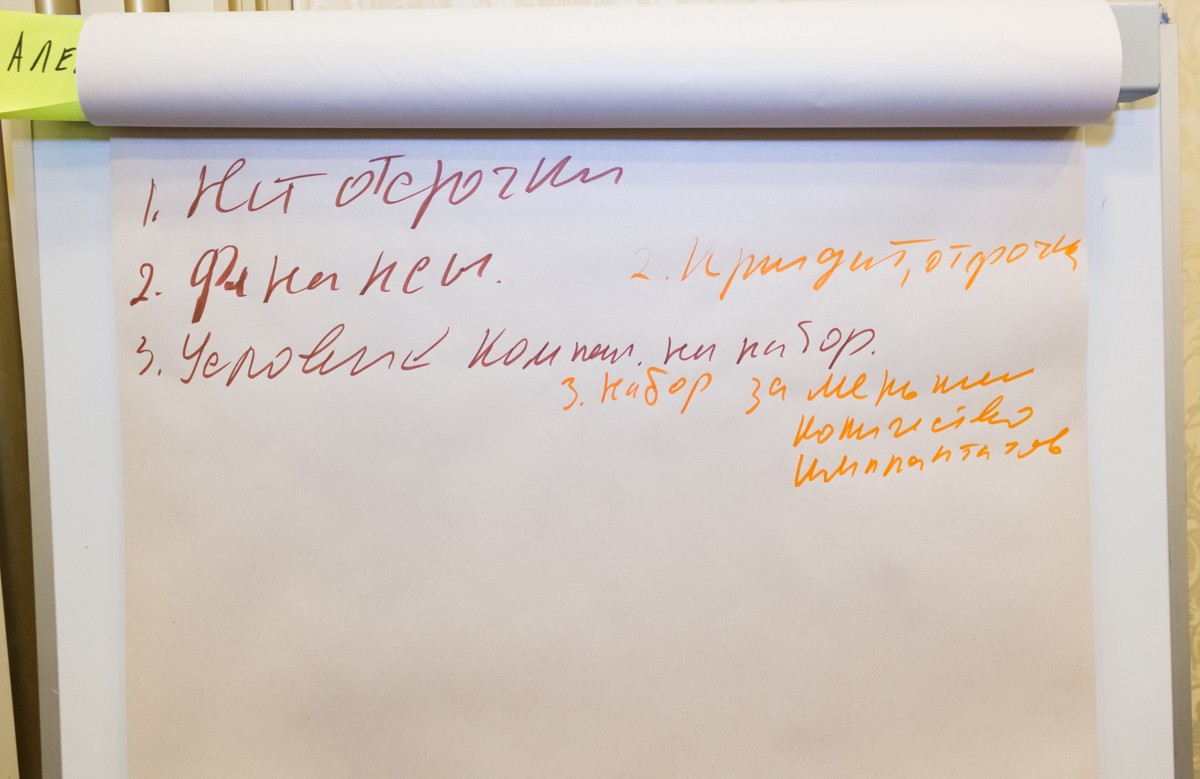 АЛЕ
1. Нет отсрочки
2. Финансы.
2. Кридит, отсрочка
3. Условия компан. на набор.
3. набор за меньшее
количество
имплантатов